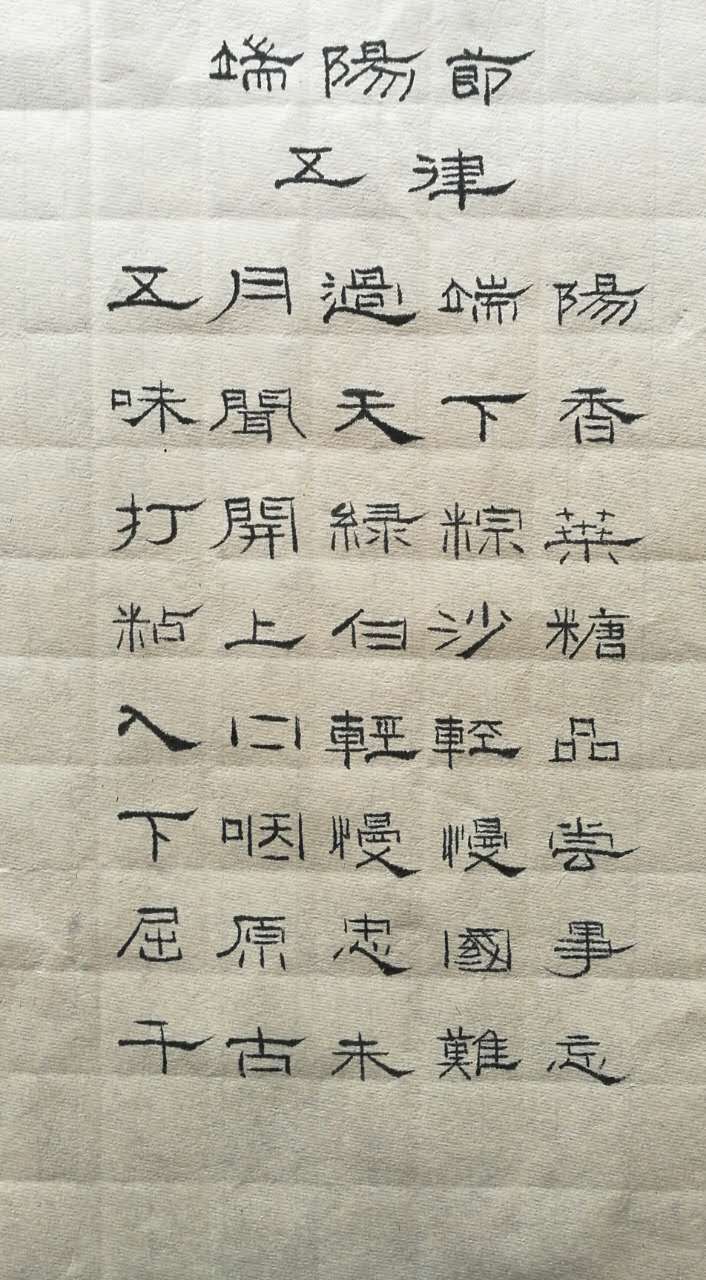 端陽節
五律
五月過端陽
味聞天下香
打開緑粽葉
粘上白沙糖
入口輕輕品
下咽慢慢尝
屈原忠國事
千古未難忘